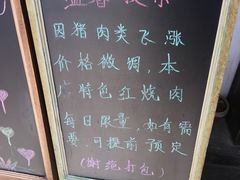 温馨提示
因猪肉类飞涨
价格微调,本
店特色红烧肉
每日限量,如有需
要,可提前预定
(谢绝打包)